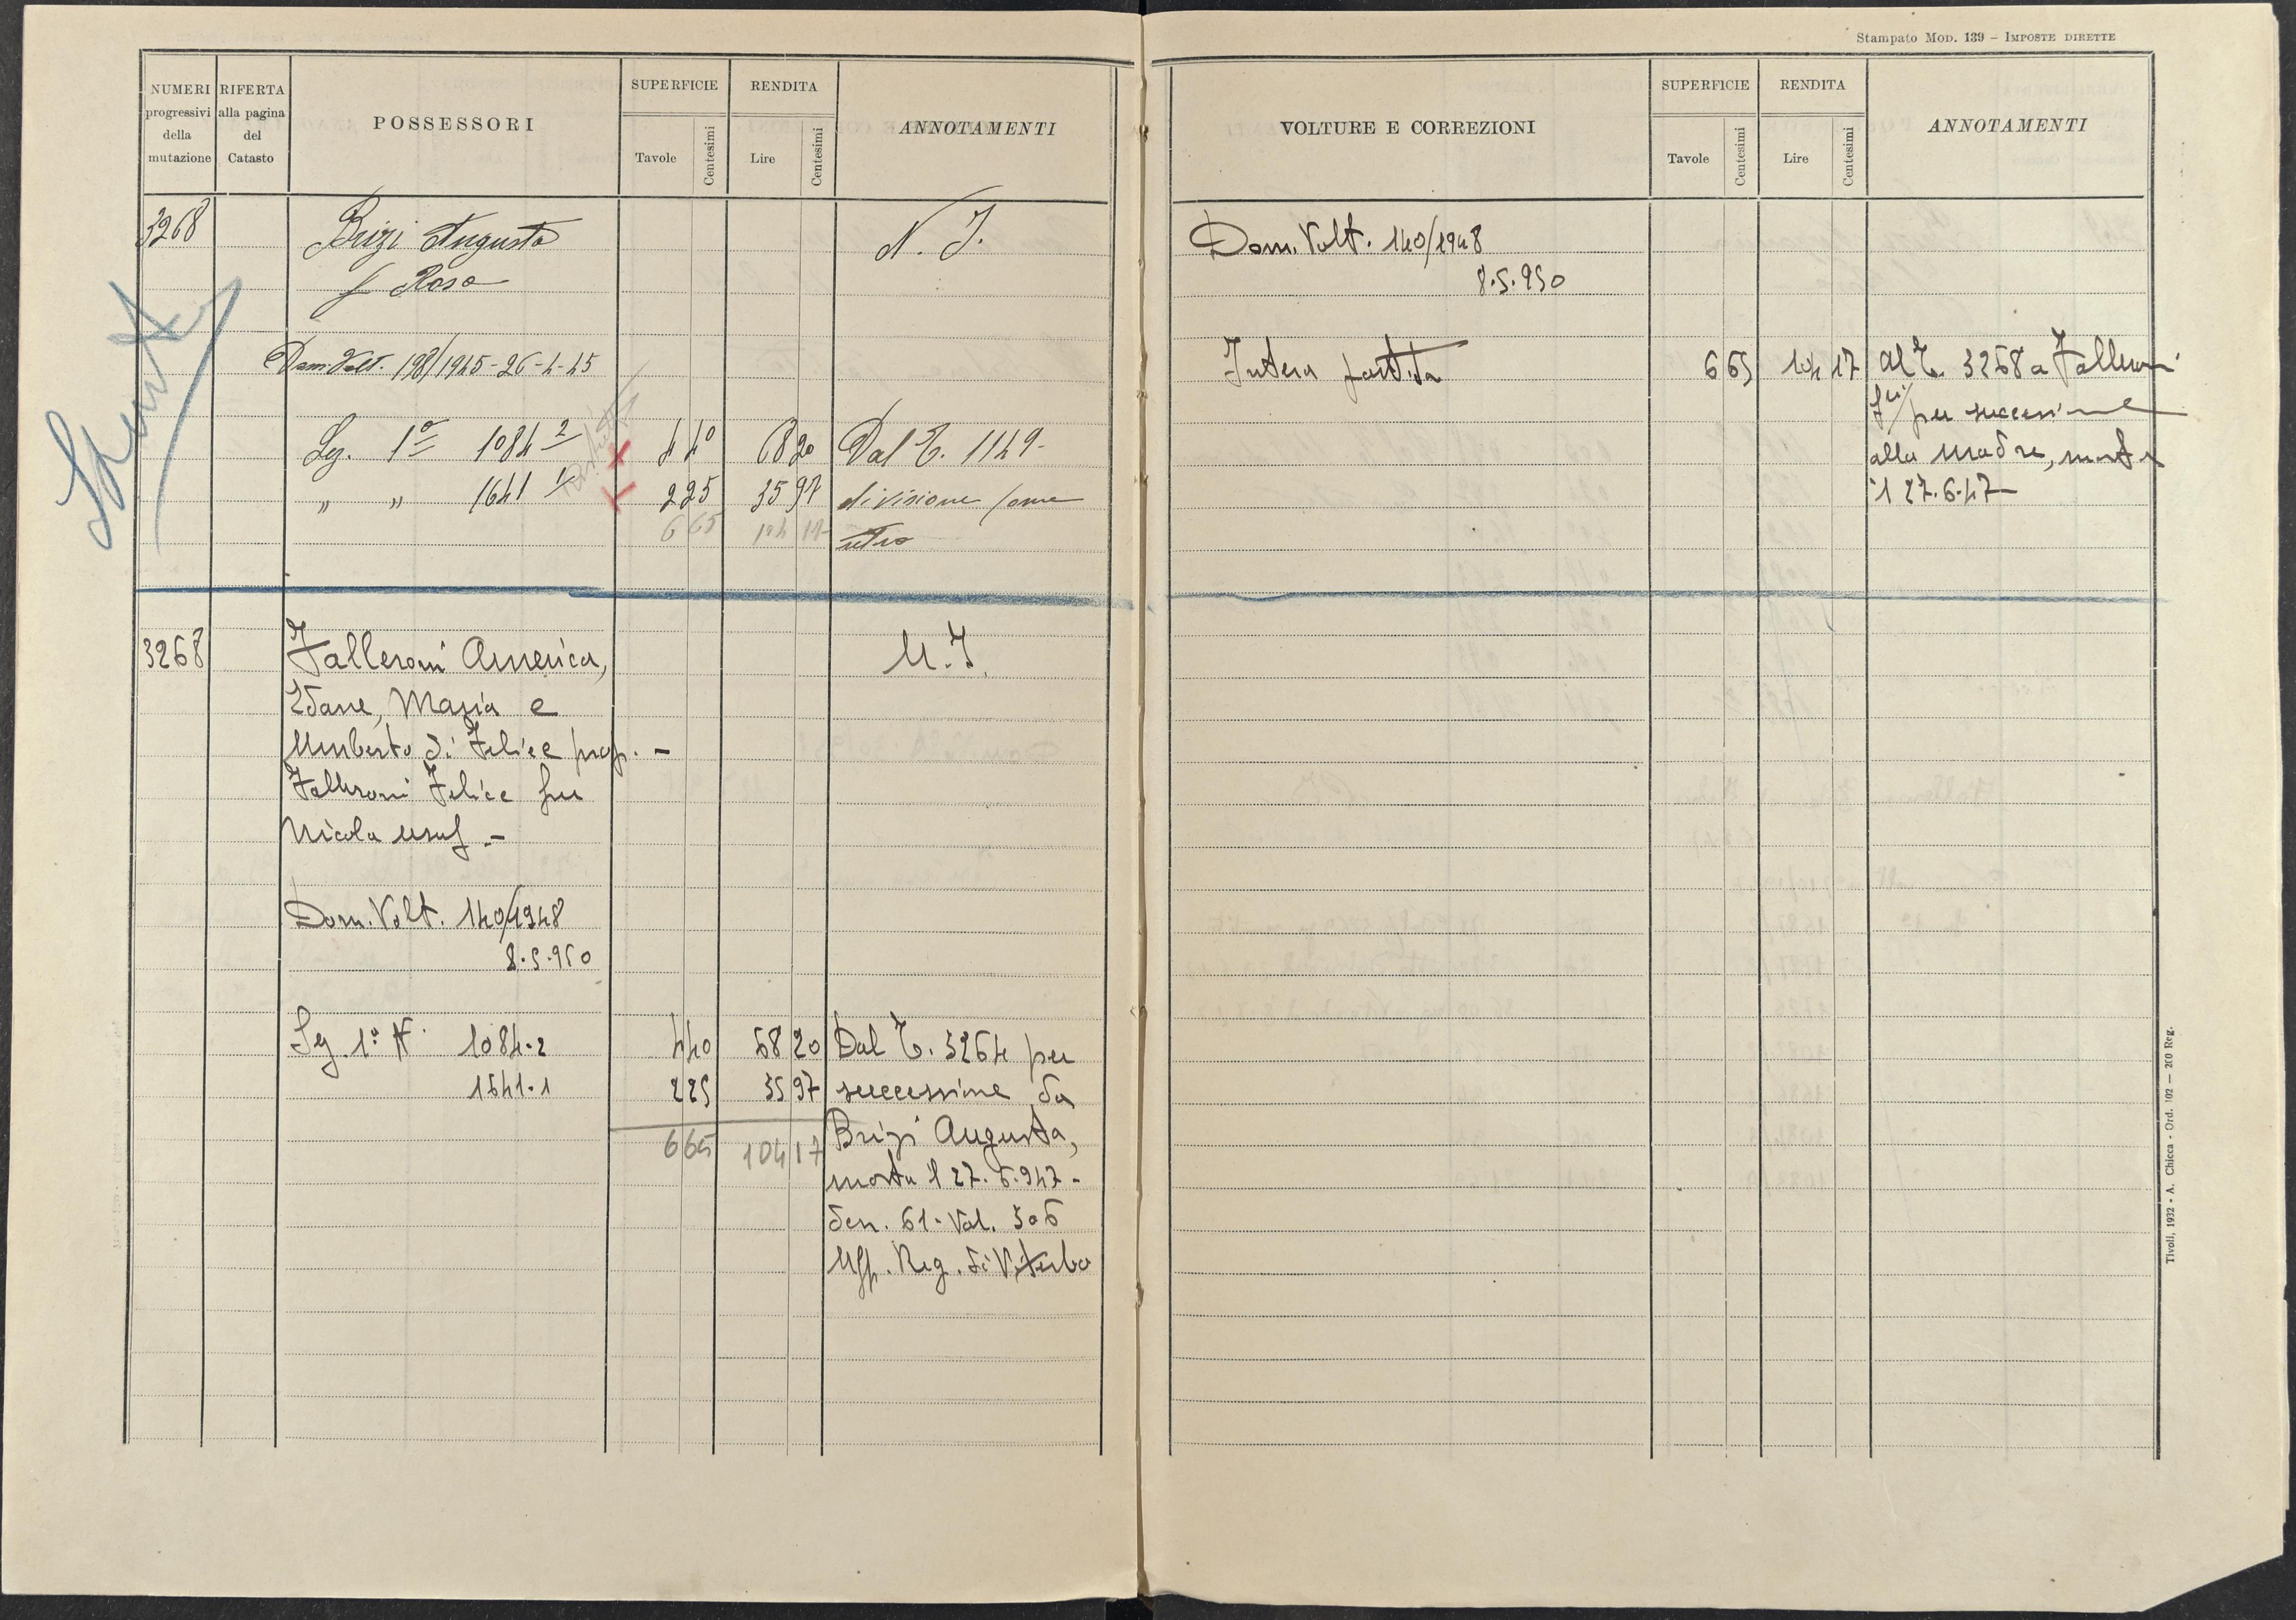 Stampato Mod. 139 – Imposte dirette
NUMERI progressivi della mutazione
RIFERTA alla pagina del Catasto
POSSESSORI
SUPERFICIE
Tavole
Centesimi
RENDITA
Lire
Centesimi
ANNOTAMENTI
3268
Brizi Augusta
f Rosa
N. I.
Dom. Volt. 198/1945-26-4-45
Sez. 1ª 1084 2 440 68 20 Dal T. 1149-
" " 1641 1 225 35 97 divisione come
665 104 17 retro
3268
Falleroni America,
Idane, Maria e
Umberto di Felice prop. -
Falleroni Felice fu
Nicola usuf. -
N. I.
Dom. Volt. 140/1948
8.5.950
Sez. 1ª N. 1084.2 440 68 20 Dal T. 3264 per
1641.1 225 35 97 successione da
665 104 17 Brizi Augusta,
morta il 27.6.947 -
den. 61 - Vol. 306
Uff. Reg. di Viterbo
VOLTURE E CORREZIONI
SUPERFICIE
Tavole
Centesimi
RENDITA
Lire
Centesimi
ANNOTAMENTI
Dom. Volt. 140/1948
8.5.950
Intera partita 665 104 17 Al T. 3268 a Falleroni
f.lli per successione
alla madre, morta
il 27.6.47
Tivoli, 1932 - A. Chicca - Ord. 102 — 200 Reg.